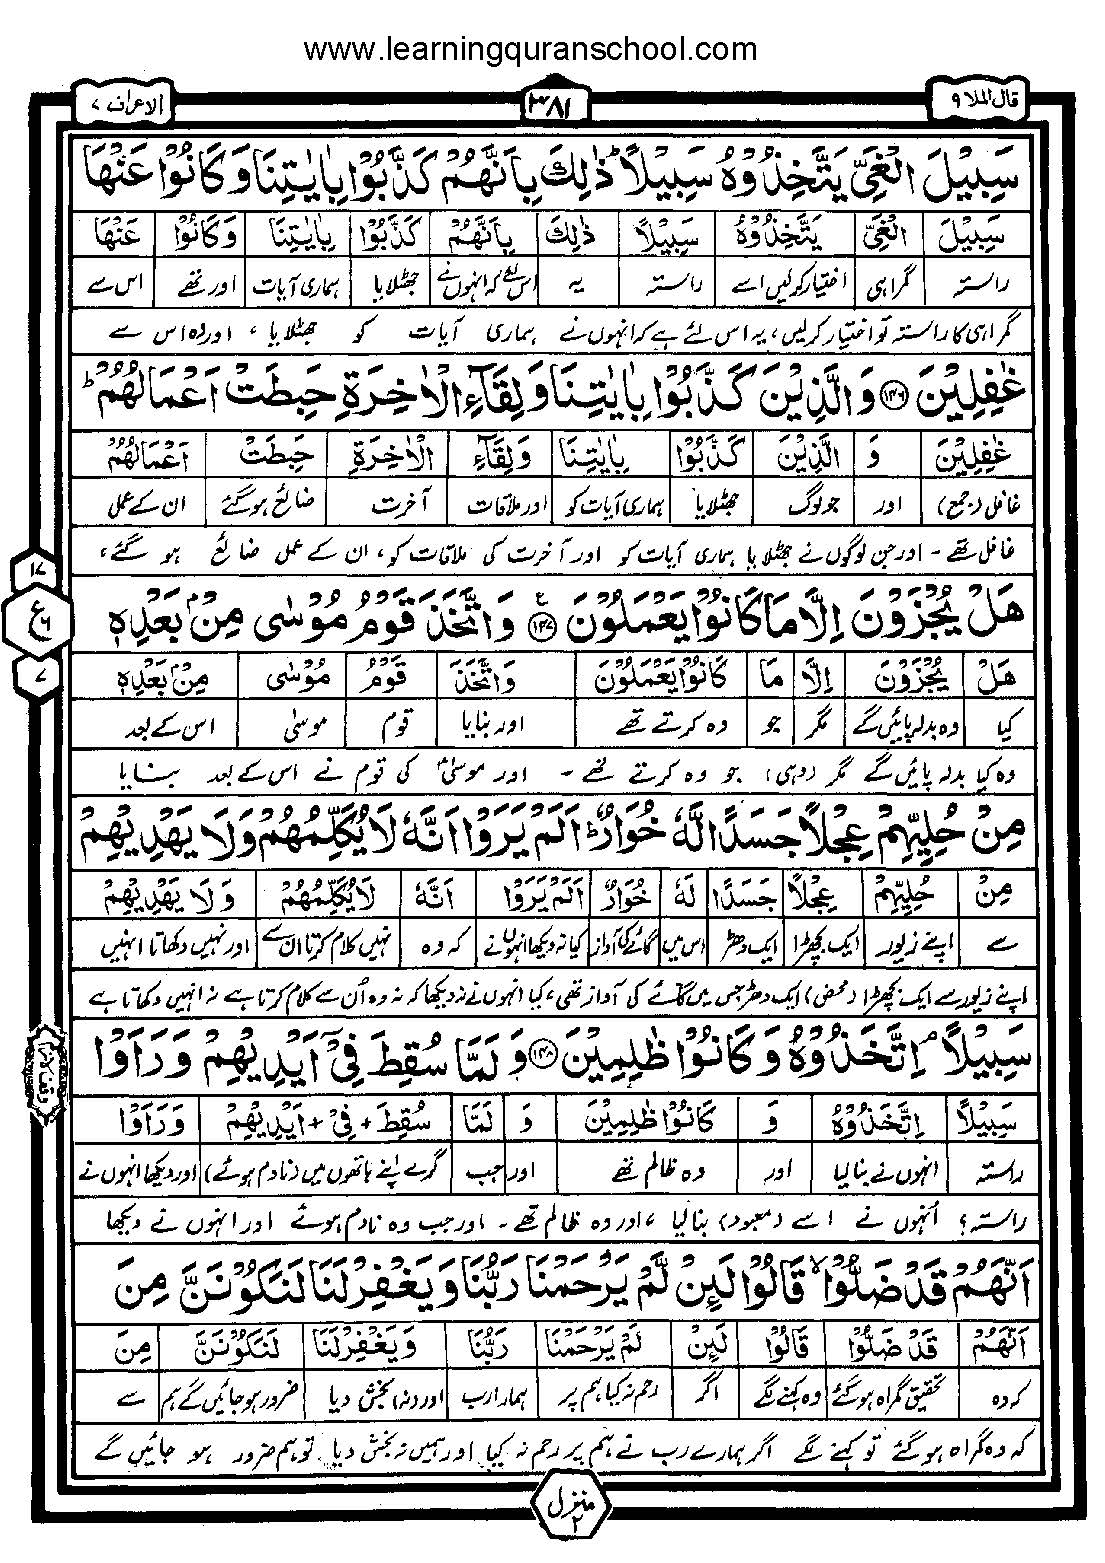 www.learningquranschool.com
قال الملا ٩
٣٨١
الاعراف ٧
سَبِيْلَ الْغَيِّ يَتَّخِذُوْهُ سَبِيْلًا ؕ ذٰلِكَ بِاَنَّهُمْ كَذَّبُوْا بِاٰيٰتِنَا وَكَانُوْا عَنْهَا
سَبِيْلَ الْغَيِّ يَتَّخِذُوْهُ سَبِيْلًا ذٰلِكَ بِاَنَّهُمْ كَذَّبُوْا بِاٰيٰتِنَا وَكَانُوْا عَنْهَا
راستہ گمراہی اختیار کرلیں اسے راستہ یہ اس لئے کہ انہوں نے جھٹلایا ہماری آیات اور تھے اس سے
گمراہی کا راستہ تو اختیار کرلیں، یہ اس لئے ہے کہ انہوں نے ہماری آیات کو جھٹلایا، اور وہ اس سے
غٰفِلِيْنَ ١٤٦ وَالَّذِيْنَ كَذَّبُوْا بِاٰيٰتِنَا وَلِقَآءِ الْاٰخِرَةِ حَبِطَتْ اَعْمَالُهُمْ ؕ
غٰفِلِيْنَ وَ الَّذِيْنَ كَذَّبُوْا بِاٰيٰتِنَا وَلِقَآءِ الْاٰخِرَةِ حَبِطَتْ اَعْمَالُهُمْ
غافل (جمع) اور جو لوگ جھٹلایا ہماری آیات کو اور ملاقات آخرت ضائع ہوگئے ان کے عمل
غافل تھے۔ اور جن لوگوں نے جھٹلایا ہماری آیات کو اور آخرت کی ملاقات کو، ان کے عمل ضائع ہو گئے،
١٧
ع
٦
٧
هَلْ يُجْزَوْنَ اِلَّا مَا كَانُوْا يَعْمَلُوْنَ ١٤٧ ع وَاتَّخَذَ قَوْمُ مُوْسٰى مِنْۢ بَعْدِهٖ
هَلْ يُجْزَوْنَ اِلَّا مَا كَانُوْا يَعْمَلُوْنَ وَاتَّخَذَ قَوْمُ مُوْسٰى مِنْۢ بَعْدِهٖ
کیا وہ بدلہ پائیں گے مگر جو وہ کرتے تھے اور بنایا قوم موسٰی اس کے بعد
وہ کیا بدلہ پائیں گے مگر (وہی) جو وہ کرتے تھے۔ اور موسٰیؑ کی قوم نے اس کے بعد بنایا
مِنْ حُلِيِّهِمْ عِجْلًا جَسَدًا لَّهٗ خُوَارٌ ؕ اَلَمْ يَرَوْا اَنَّهٗ لَا يُكَلِّمُهُمْ وَلَا يَهْدِيْهِمْ
مِنْ حُلِيِّهِمْ عِجْلًا جَسَدًا لَهٗ خُوَارٌ اَلَمْ يَرَوْا اَنَّهٗ لَا يُكَلِّمُهُمْ وَلَا يَهْدِيْهِمْ
سے اپنے زیور ایک بچھڑا ایک دھڑ اس میں گائے کی آواز کیا نہ دیکھا انہوں نے کہ وہ نہیں کلام کرتا ان سے اور نہیں دکھاتا انہیں
اپنے زیور سے ایک بچھڑا (محض) ایک دھڑ جس میں گائے کی آواز تھی، کیا انہوں نے نہ دیکھا کہ نہ وہ اُن سے کلام کرتا ہے نہ انہیں دکھاتا ہے
سَبِيْلًا ۘ اِتَّخَذُوْهُ وَكَانُوْا ظٰلِمِيْنَ ١٤٨ وَلَمَّا سُقِطَ فِيْۤ اَيْدِيْهِمْ وَرَاَوْا
سَبِيْلًا اِتَّخَذُوْهُ وَ كَانُوْا ظٰلِمِيْنَ وَ لَمَّا سُقِطَ + فِيْ + اَيْدِيْهِمْ وَرَاَوْا
راستہ انہوں نے بنا لیا اور وہ ظالم تھے اور جب گرے اپنے ہاتھوں میں (نادم ہوئے) اور دیکھا انہوں نے
راستہ؟ اُنہوں نے اسے (معبود) بنا لیا، اور وہ ظالم تھے۔ اور جب وہ نادم ہوئے اور انہوں نے دیکھا
اَنَّهُمْ قَدْ ضَلُّوْا ۙ قَالُوْا لَئِنْ لَّمْ يَرْحَمْنَا رَبُّنَا وَيَغْفِرْ لَنَا لَنَكُوْنَنَّ مِنَ
اَنَّهُمْ قَدْ ضَلُّوْا قَالُوْا لَئِنْ لَمْ يَرْحَمْنَا رَبُّنَا وَيَغْفِرْلَنَا لَنَكُوْنَنَّ مِنَ
کہ وہ تحقیق گمراہ ہوگئے وہ کہنے لگے اگر رحم نہ کیا ہم پر ہمارا رب اور (نہ) بخش دیا ضرور ہو جائیں گے ہم سے
کہ وہ گمراہ ہو گئے تو کہنے لگے اگر ہمارے رب نے ہم پر رحم نہ کیا اور ہمیں نہ بخش دیا تو ہم ضرور ہو جائیں گے
منزل
٢